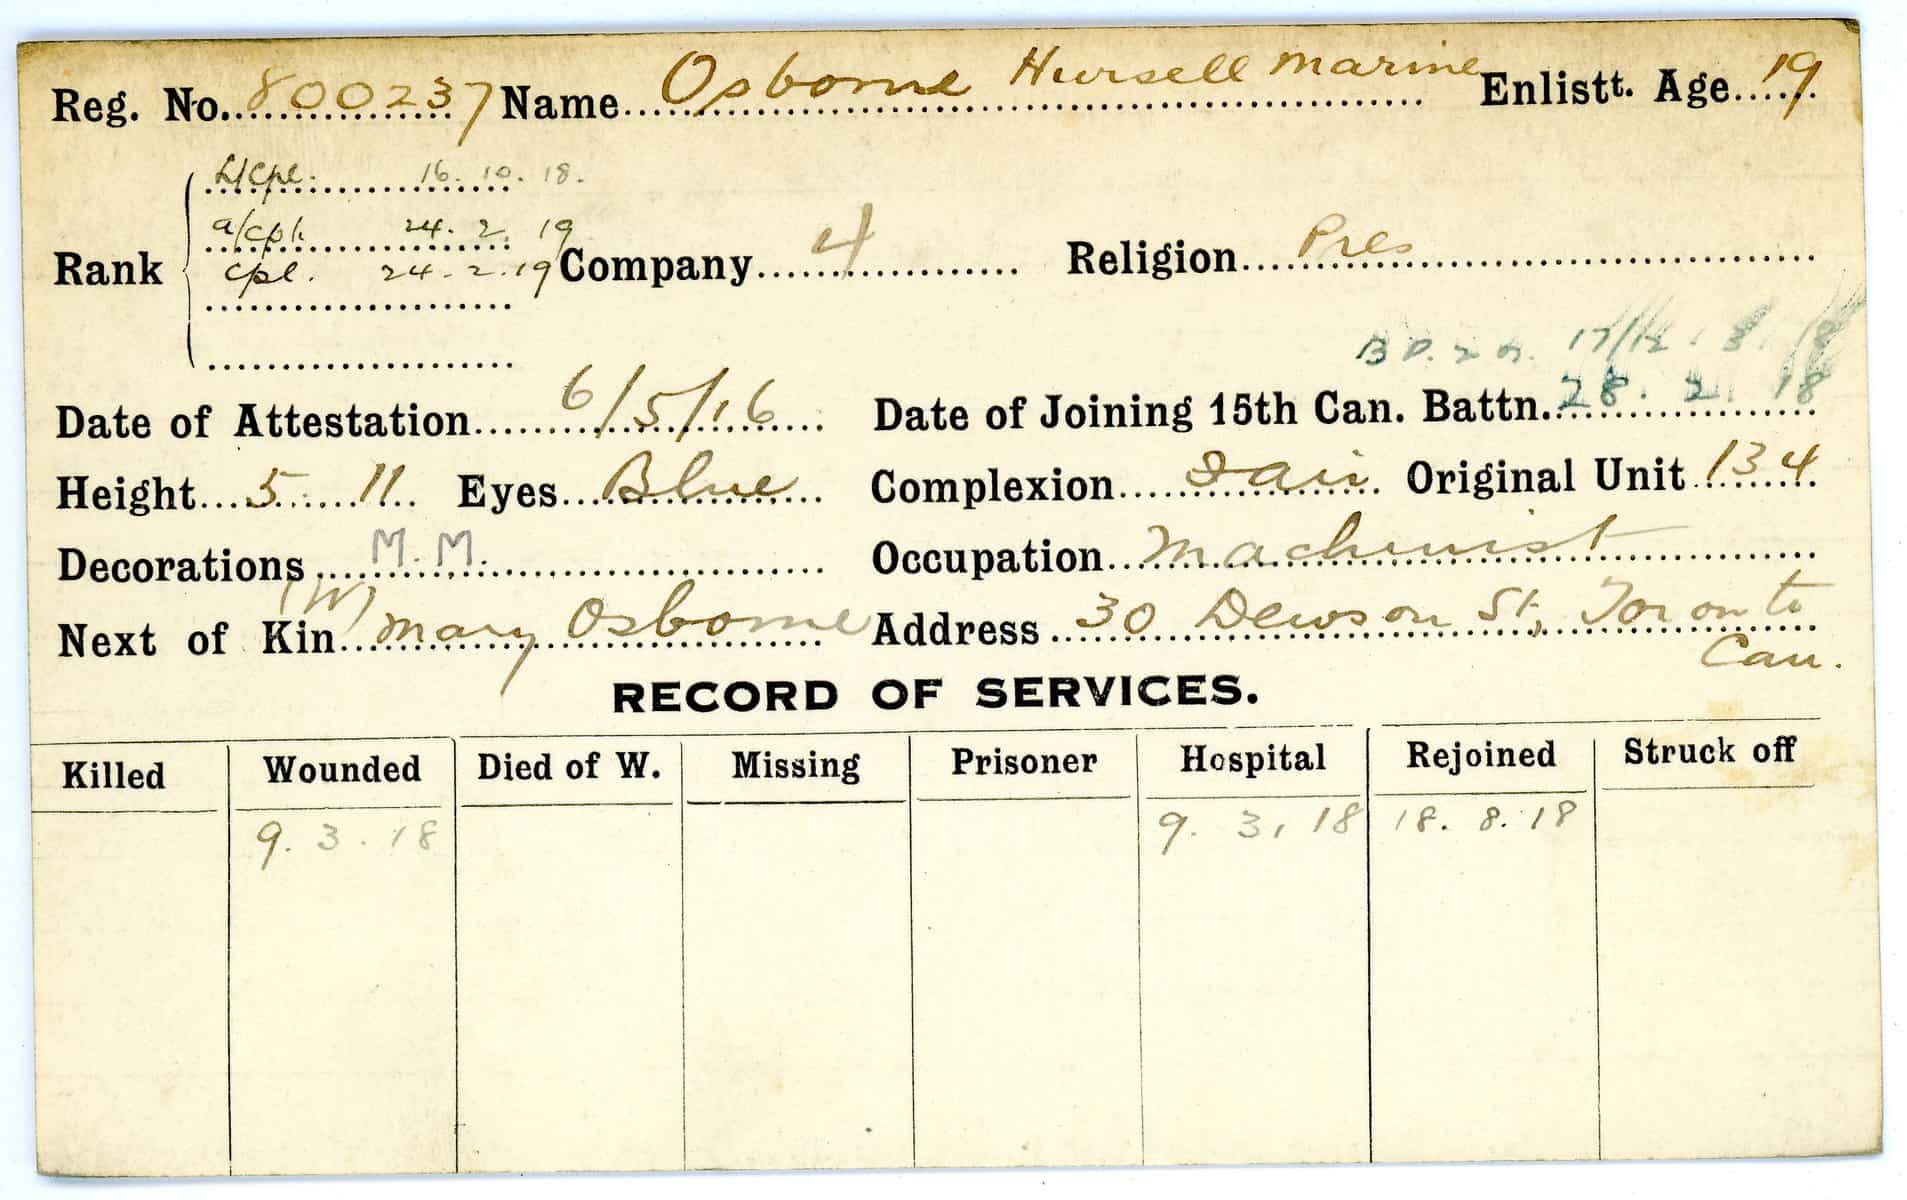 Reg. No. 800237 Name Osborne Hursell Marine Enlistt. Age 19
L/Cpl. 16. 10. 18.
a/cpl. 24. 2. 19
Rank cpl. 24. 2. 19 Company 4 Religion Pres
17/12 . 3. 18
Date of Attestation 6/5/16 Date of Joining 15th Can. Battn. 28. 2. 18
Height 5. 11 Eyes Blue Complexion Fair Original Unit 134
Decorations M. M. Occupation Machinist
Next of Kin (W) Mary Osborne Address 30 Dewson St, Toronto
Can.
RECORD OF SERVICES.
Killed Wounded Died of W. Missing Prisoner Hospital Rejoined Struck off
9. 3. 18 9. 3. 18 18. 8. 18